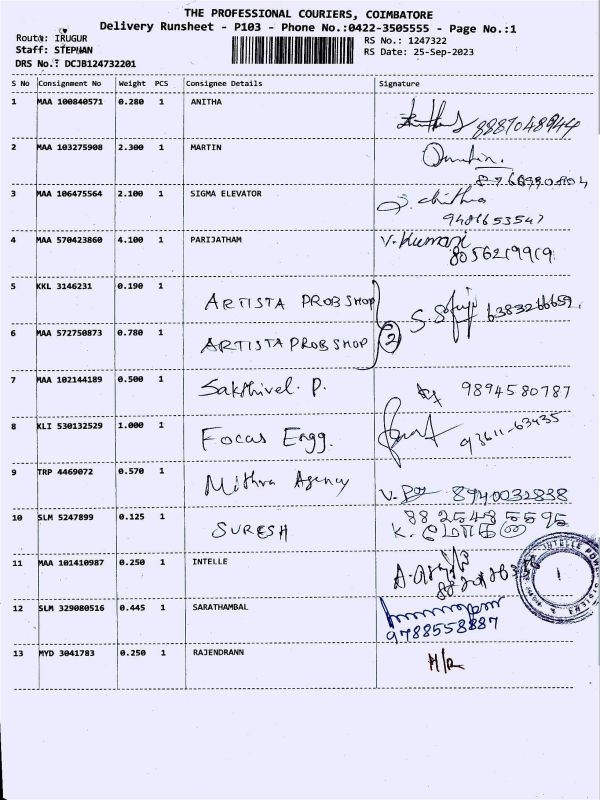 THE PROFESSIONAL COURIERS, COIMBATORE
Delivery Runsheet - P103 - Phone No.:0422-3505555 - Page No.:1
Route: IRUGUR
RS No.: 1247322
Staff: STEPHAN
RS Date: 25-Sep-2023
DRS No.: DCJB124732201
S No Consignment No Weight PCS Consignee Details Signature
1 MAA 100840571 0.280 1 ANITHA
2 MAA 103275908 2.300 1 MARTIN
3 MAA 106475564 2.100 1 SIGMA ELEVATOR
4 MAA 570423860 4.100 1 PARIJATHAM V. Kumari
5 KKL 3146231 0.190 1 ARTISTA PROB SHOP
6 MAA 572750873 0.780 1 ARTISTA PROB SHOP 2
7 MAA 102144189 0.500 1 Sakthivel. P. 9894580787
8 KLI 530132529 1.000 1 Focus Engg. 93611-63435
9 TRP 4469072 0.570 1 Mithra Agency 8940032838
10 SLM 5247899 0.125 1 SURESH
11 MAA 101410987 0.250 1 INTELLE
12 SLM 329080516 0.445 1 SARATHAMBAL
9788558887
13 MYD 3041783 0.250 1 RAJENDRANN H/R